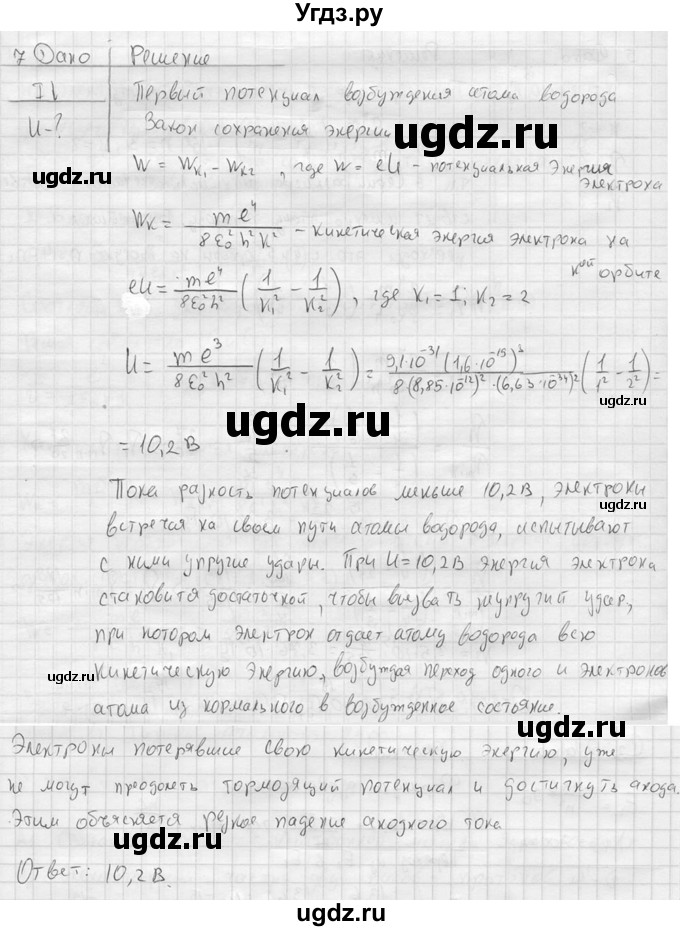 Угдз.ру
7 Дано Решение
Первый потенциал возбуждения атома водорода
U-? Закон сохранения энергии
ugdz.ru
ugdz.ru
W = W_K₁ - W_K₂, где W = eU - потенциальная энергия
электрона
W_K = me⁴/(8ε₀²h²K²) - кинетическая энергия электрона на
K^ой орбите
eU = me⁴/(8ε₀²h²) (1/K₁² - 1/K₂²), где K₁ = 1; K₂ = 2
ugdz.ru
U = me³/(8ε₀²h²) (1/K₁² - 1/K₂²) = 9,1·10⁻³¹(1,6·10⁻¹⁹)³/(8(8,85·10⁻¹²)²·(6,63·10⁻³⁴)²) (1/1² - 1/2²) =
ugdz.ru
ugdz.ru
= 10,2 В
Пока разность потенциалов меньше 10,2 В, электроны
встречая на своем пути атомы водорода, испытывают
ugdz.ru
с ними упругие удары. При U = 10,2 В энергия электрона
становится достаточной, чтобы вызвать неупругий удар,
ugdz.ru
при котором электрон отдает атому водорода всю
кинетическую энергию, возбуждая переход одного и электронов
ugdz.ru
атома из нормального в возбужденное состояние.
ugdz.ru
Электроны потерявшие свою кинетическую энергию, уже
не могут преодолеть тормозящий потенциал и достигнуть анода.
Этим объясняется резкое падение анодного тока
ugdz.ru
Ответ: 10,2 В.
ugdz.ru
ugdz.ru